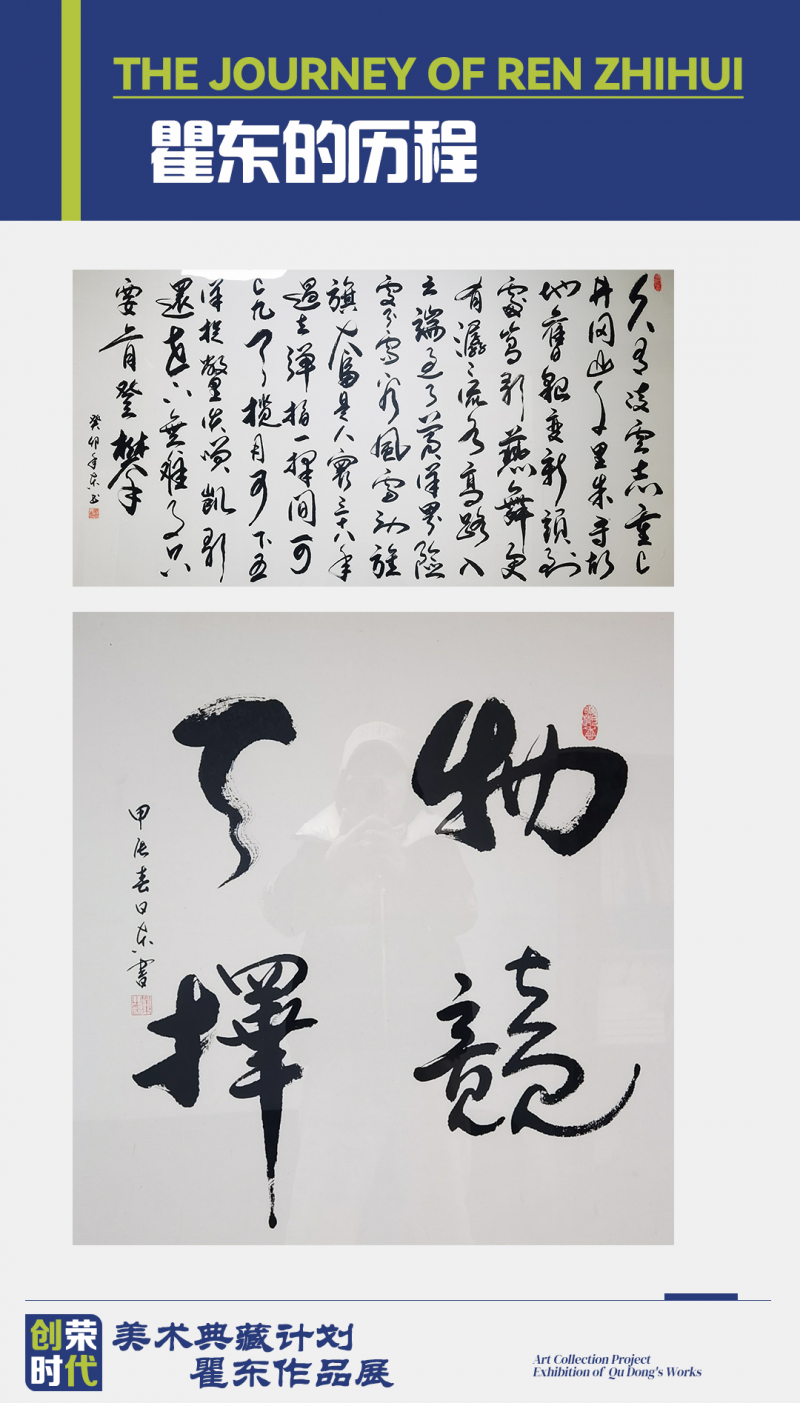 THE JOURNEY OF REN ZHIHUI
瞿东的历程
久有凌云志重上
井冈山千里来寻故
地舊貌變新顔到
處鶯歌燕舞更
有潺々流水高路入
云端過了黄洋界險
處不須看風雷动旌
旗奮是人寰三十八年
過去彈指一揮間可
上九天攬月可下五
洋捉鳖談笑凱歌
還世上無難事只
要肯登攀
癸卯年东书
物競
天擇
甲辰春日东書
创荣
时代
美术典藏计划
瞿东作品展
Art Collection Project
Exhibition of Qu Dong's Works